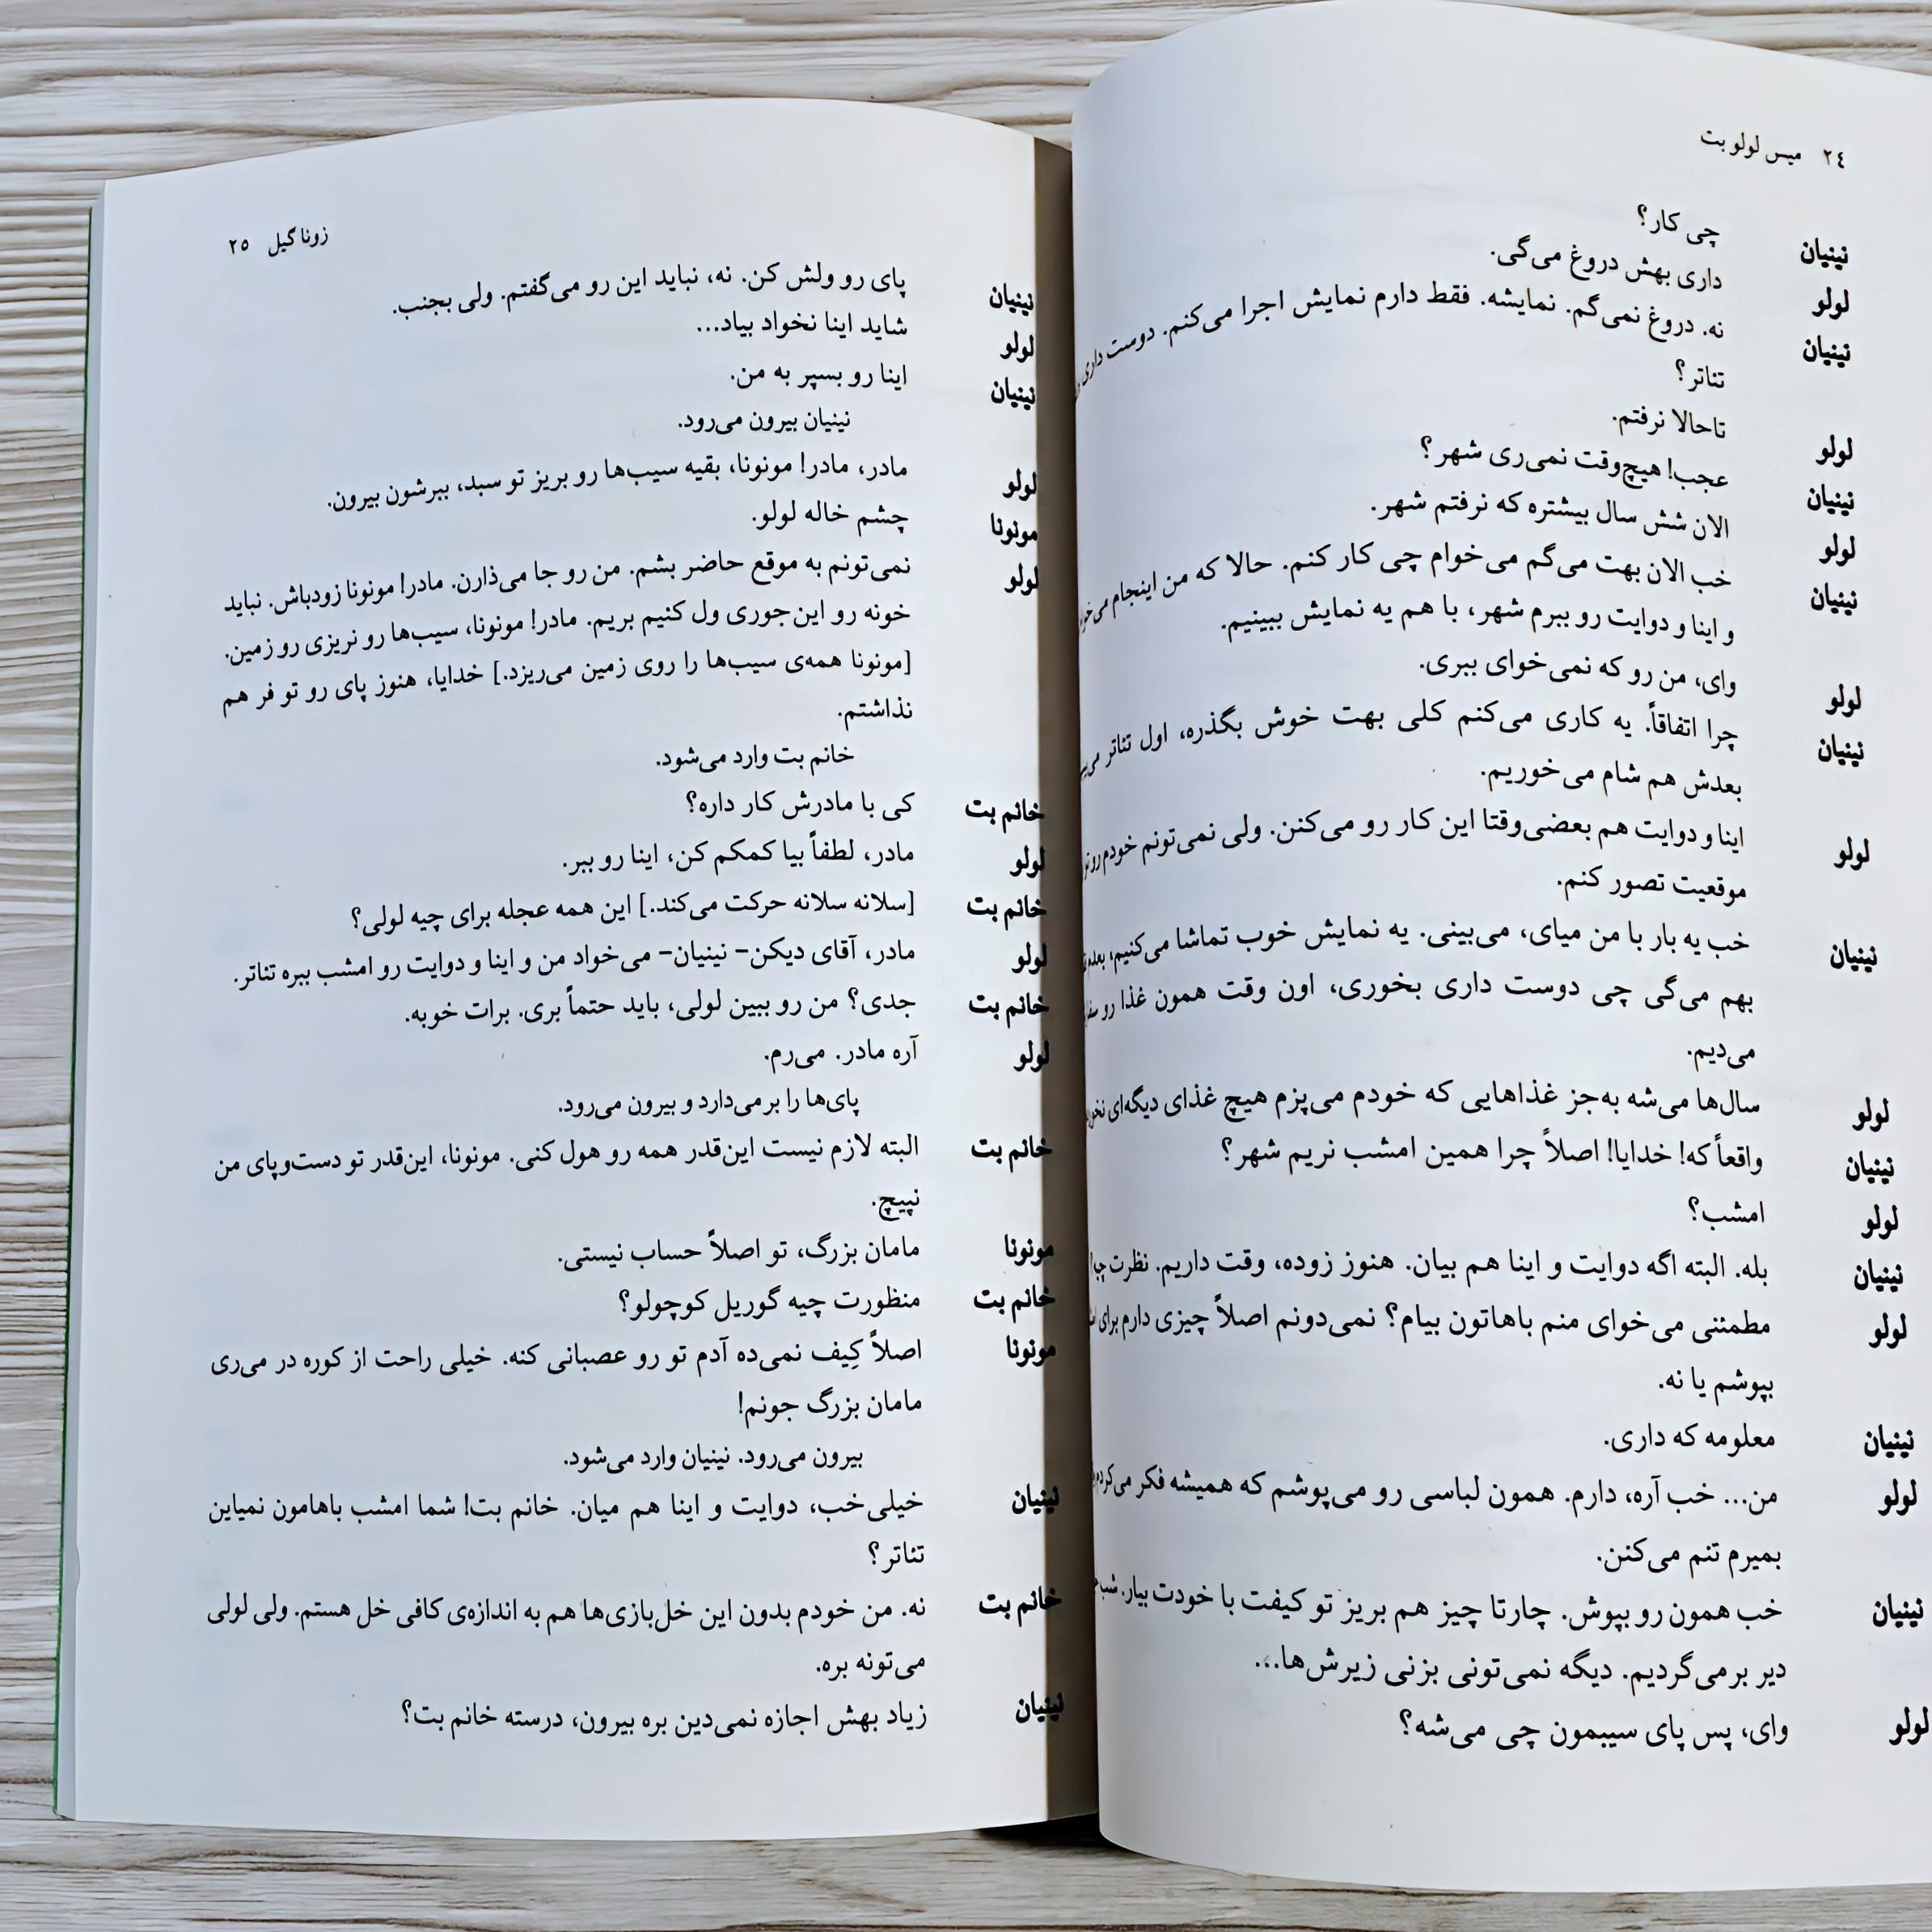 ۲٤ میس لولو بت
چی کار؟
نینیان داری بهش دروغ می‌گی.
لولو نه. دروغ نمی‌گم. نمایشه. فقط دارم نمایش اجرا می‌کنم. دوست داری
نینیان تئاتر؟
تاحالا نرفتم.
لولو عجب! هیچ‌وقت نمی‌ری شهر؟
نینیان الان شش سال بیشتره که نرفتم شهر.
لولو خب الان بهت می‌گم می‌خوام چی کار کنم. حالا که من اینجام
نینیان و اینا و دوایت رو ببرم شهر، با هم یه نمایش ببینیم.
وای، من رو که نمی‌خوای ببری.
لولو چرا اتفاقاً. یه کاری می‌کنم کلی بهت خوش بگذره، اول تئاتر
نینیان بعدش هم شام می‌خوریم.
اینا و دوایت هم بعضی‌وقتا این کار رو می‌کنن. ولی نمی‌تونم خودم رو
لولو موقعیت تصور کنم.
خب یه بار با من میای، می‌بینی. یه نمایش خوب تماشا می‌کنیم،
نینیان بهم می‌گی چی دوست داری بخوری، اون وقت همون غذا رو
می‌دیم.
لولو سال‌ها می‌شه به‌جز غذاهایی که خودم می‌پزم هیچ غذای دیگه‌ای
نینیان واقعاً که! خدایا! اصلاً چرا همین امشب نریم شهر؟
لولو امشب؟
نینیان بله. البته اگه دوایت و اینا هم بیان. هنوز زوده، وقت داریم. نظرت
لولو مطمئنی می‌خوای منم باهاتون بیام؟ نمی‌دونم اصلاً چیزی دارم برای
بپوشم یا نه.
نینیان معلومه که داری.
لولو من... خب آره، دارم. همون لباسی رو می‌پوشم که همیشه فکر
بمیرم تنم می‌کنن.
نینیان خب همون رو بپوش. چارتا چیز هم بریز تو کیفت با خودت بیار.
دیر برمی‌گردیم. دیگه نمی‌تونی بزنی زیرش‌ها...
لولو وای، پس پای سیبمون چی می‌شه؟
زونا گیل ۲٥
نینیان پای رو ولش کن. نه، نباید این رو می‌گفتم. ولی بجنب.
لولو شاید اینا نخواد بیاد...
نینیان اینا رو بسپر به من.
نینیان بیرون می‌رود.
لولو مادر، مادر! مونونا، بقیه سیب‌ها رو بریز تو سبد، ببرشون بیرون.
مونونا چشم خاله لولو.
لولو نمی‌تونم به موقع حاضر بشم. من رو جا می‌ذارن. مادر! مونونا زودباش. نباید
خونه رو این‌جوری ول کنیم بریم. مادر! مونونا، سیب‌ها رو نریزی رو زمین.
[مونونا همه‌ی سیب‌ها را روی زمین می‌ریزد.] خدایا، هنوز پای رو تو فر هم
نذاشتم.
خانم بت وارد می‌شود.
خانم بت کی با مادرش کار داره؟
لولو مادر، لطفاً بیا کمکم کن، اینا رو ببر.
خانم بت [سلانه سلانه حرکت می‌کند.] این همه عجله برای چیه لولی؟
لولو مادر، آقای دیکن- نینیان- می‌خواد من و اینا و دوایت رو امشب ببره تئاتر.
خانم بت جدی؟ من رو ببین لولی، باید حتماً بری. برات خوبه.
لولو آره مادر. می‌رم.
پای‌ها را برمی‌دارد و بیرون می‌رود.
خانم بت البته لازم نیست این‌قدر همه رو هول کنی. مونونا، این‌قدر تو دست‌وپای من
نپیچ.
مونونا مامان بزرگ، تو اصلاً حساب نیستی.
خانم بت منظورت چیه گوریل کوچولو؟
مونونا اصلاً کِیف نمی‌ده آدم تو رو عصبانی کنه. خیلی راحت از کوره در می‌ری
مامان بزرگ جونم!
بیرون می‌رود. نینیان وارد می‌شود.
نینیان خیلی‌خب، دوایت و اینا هم میان. خانم بت! شما امشب باهامون نمیاین
تئاتر؟
خانم بت نه. من خودم بدون این خل‌بازی‌ها هم به اندازه‌ی کافی خل هستم. ولی لولی
می‌تونه بره.
نینیان زیاد بهش اجازه نمی‌دین بره بیرون، درسته خانم بت؟